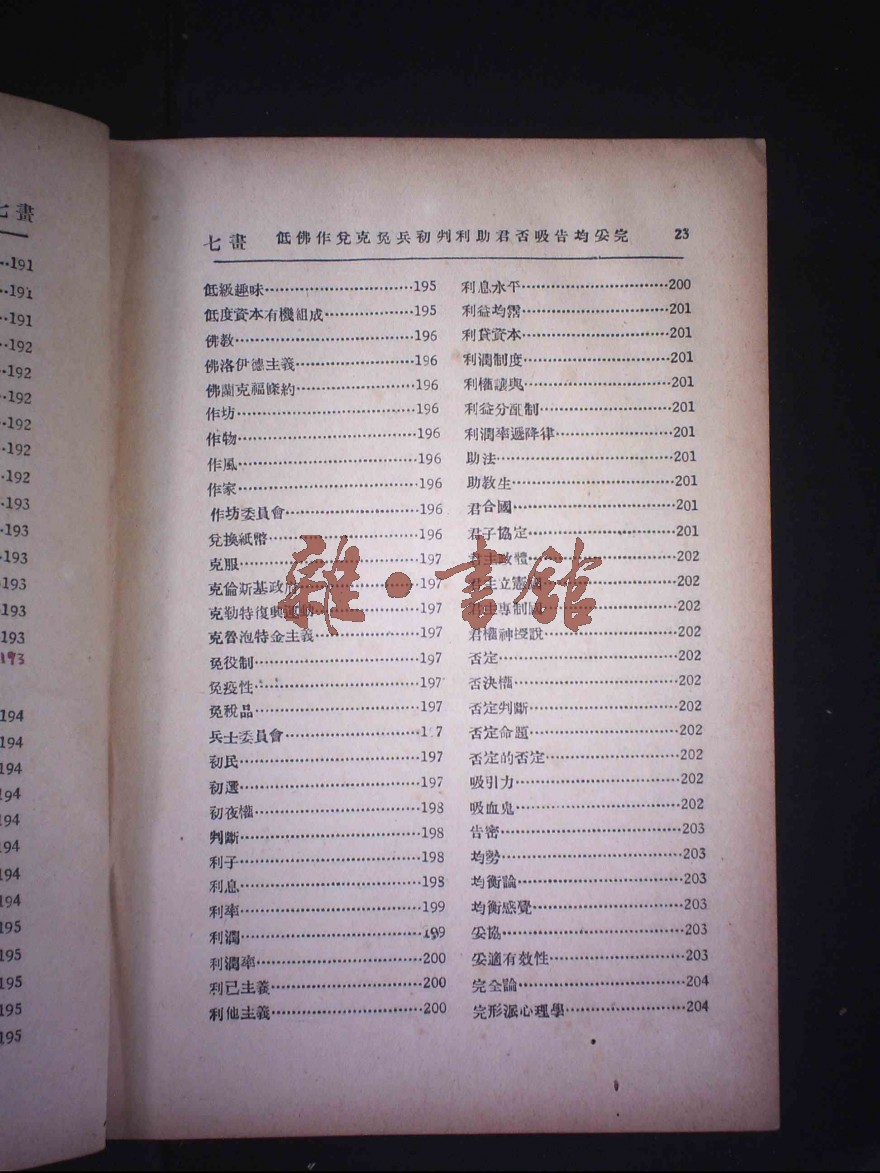 七畫
191
191
191
192
192
192
192
192
192
193
193
193
193
193
193
193
194
194
194
194
194
194
194
194
195
195
195
195
195
七畫 低佛作兌克免兵初判利助君否吸告均妥完 23
低級趣味 195
低度資本有機組成 195
佛教 196
佛洛伊德主義 196
佛蘭克福條約 196
作坊 196
作物 196
作風 196
作家 196
作坊委員會 196
兌換紙幣 196
克服 197
克倫斯基政府 197
克勒特復興運動 197
克魯泡特金主義 197
免役制 197
免疫性 197
免稅品 197
兵士委員會 1 7
初民 197
初選 197
初夜權 198
判斷 198
利子 198
利息 198
利率 199
利潤 199
利潤率 200
利己主義 200
利他主義 200
利息水平 200
利益均霑 201
利貸資本 201
利潤制度 201
利權讓與 201
利益分配制 201
利潤率遞降律 201
助法 201
助教生 201
君合國 201
君子協定 201
君主政體 202
君主立憲國 202
君主專制國 202
君權神授說 202
否定 202
否決權 202
否定判斷 202
否定命題 202
否定的否定 202
吸引力 202
吸血鬼 202
告密 203
均勢 203
均衡論 203
均衡感覺 203
妥協 203
妥適有效性 203
完全論 204
完形派心理學 204
雜·書館